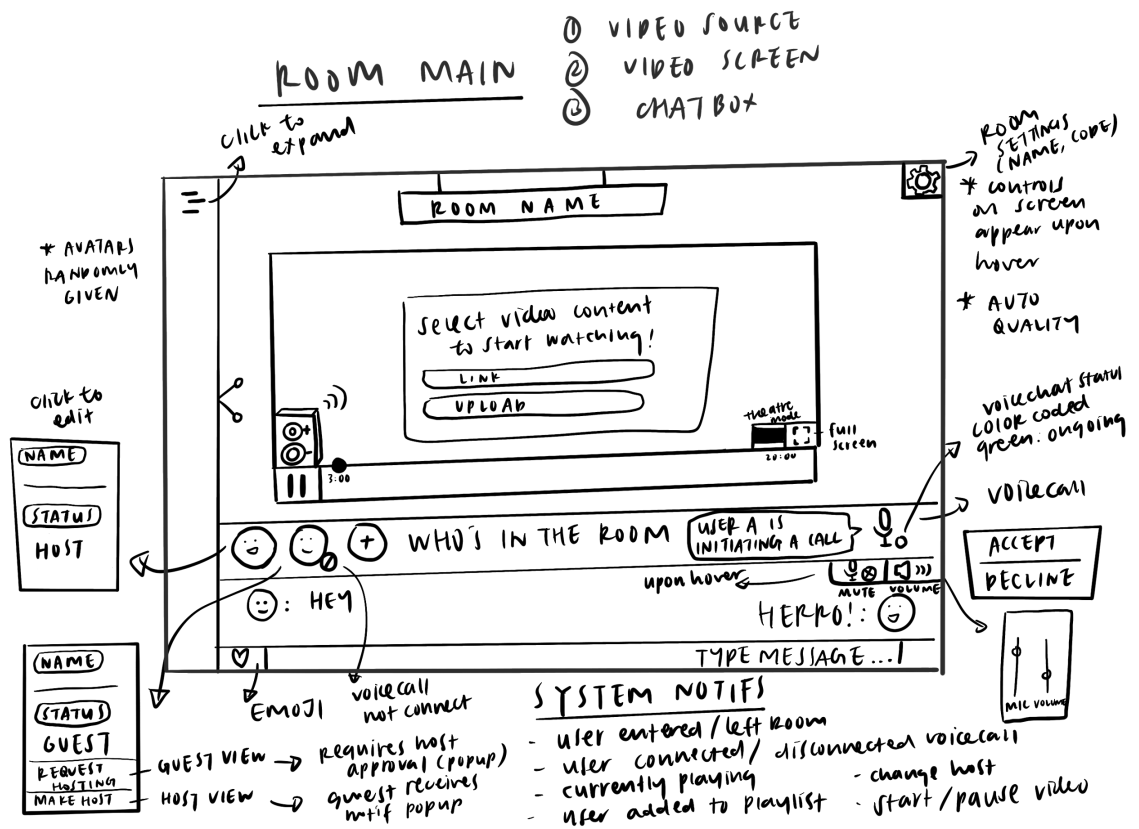 ROOM MAIN
① VIDEO SOURCE
② VIDEO SCREEN
③ CHATBOX
click to
expand
ROOM
SETTINGS
(NAME, CODE)
* controls
on screen
appear upon
hover
* AUTO
QUALITY
* AVATARS
RANDOMLY
GIVEN
ROOM NAME
select video content
to start watching!
LINK
UPLOAD
theatre
mode
full
screen
3:00
20:00
click to
edit
NAME
STATUS
HOST
voicechat status
color coded
green: ongoing
voicecall
ACCEPT
DECLINE
WHO'S IN THE ROOM
USER A IS
INITIATING A CALL
upon hover
MUTE VOLUME
: HEY
HERRO! :
TYPE MESSAGE...
MIC VOLUME
EMOJI
voicecall
not connect
NAME
STATUS
GUEST
REQUEST
HOSTING
MAKE HOST
GUEST VIEW → requires host
approval (popup)
HOST VIEW → guest receives
notif popup
SYSTEM NOTIFS
- user entered/left room
- user connected/disconnected voicecall
- currently playing
- user added to playlist
- change host
- start/pause video